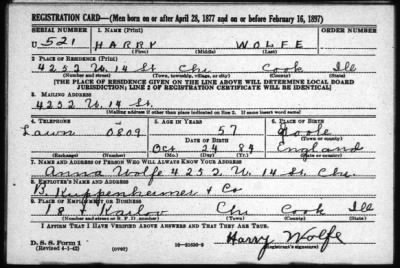 REGISTRATION CARD—(Men born on or after April 28, 1877 and on or before February 16, 1897)
SERIAL NUMBER 1. NAME (Print) ORDER NUMBER
U 521 HARRY WOLFE
(First) (Middle) (Last)
2. PLACE OF RESIDENCE (Print)
4252 W. 14 St Chi Cook Ill
(Number and street) (Town, township, village, or city) (County) (State)
[THE PLACE OF RESIDENCE GIVEN ON THE LINE ABOVE WILL DETERMINE LOCAL BOARD
JURISDICTION; LINE 2 OF REGISTRATION CERTIFICATE WILL BE IDENTICAL]
3. MAILING ADDRESS
4252 W. 14 St.
[Mailing address if other than place indicated on line 2. If same insert word same]
4. TELEPHONE 5. AGE IN YEARS 6. PLACE OF BIRTH
Lawn 0809 57
DATE OF BIRTH (Town or county)
Oct 24 84 England
(Exchange) (Number) (Mo.) (Day) (Yr.) (State or country)
7. NAME AND ADDRESS OF PERSON WHO WILL ALWAYS KNOW YOUR ADDRESS
Anna Wolfe 4252 W. 14 St. Chi.
8. EMPLOYER'S NAME AND ADDRESS
B. Kuppenheimer & Co
9. PLACE OF EMPLOYMENT OR BUSINESS
18 & Karlov Chi Cook Ill
(Number and street or R. F. D. number) (Town) (County) (State)
I AFFIRM THAT I HAVE VERIFIED ABOVE ANSWERS AND THAT THEY ARE TRUE.
D. S. S. Form 1
(Revised 4-1-42) (over) 16—21630-2 Harry Wolfe
(Registrant's signature)